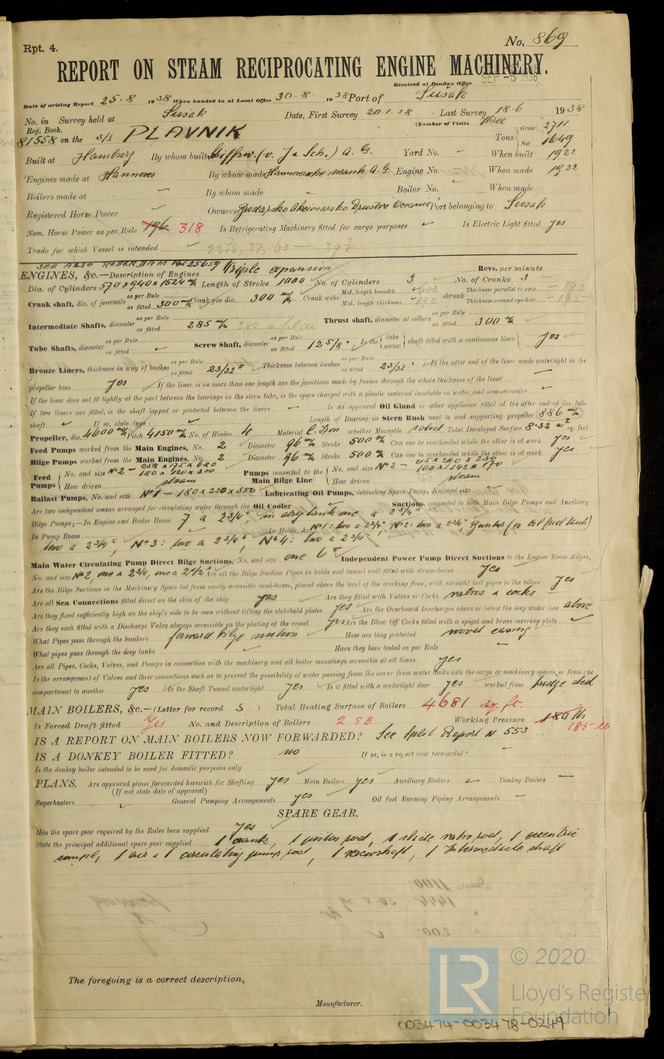 Rpt. 4.
No. 869
REPORT ON STEAM RECIPROCATING ENGINE MACHINERY.
Received at London Office SEP -5 1938
Date of writing Report 25.8 1938 When handed in at Local Office 30.8 1938 Port of Susak
No. in Reg. Book. Survey held at Susak Date, First Survey Last Survey 18.6 1938
(Number of Visits
81558 on the s/s PLAVNIK Tons Gross 2711 Net 1649
Built at Hamburg By whom built A. G. Yard No. – When built 1922
Engines made at Hannover By whom made A. G. Engine No. – When made 1922
Boilers made at By whom made Boiler No. When made
Registered Horse Power Owners Port belonging to Susak
Nom. Horse Power as per Rule 196 318 Is Refrigerating Machinery fitted for cargo purposes Is Electric Light fitted yes
Trade for which Vessel is intended
ENGINES, &c.—Description of Engines Triple expansion Revs. per minute
Dia. of Cylinders 570x940x1524 m/m Length of Stroke 1000 No. of Cylinders 3 No. of Cranks 3
Crank shaft, dia. of journals as per Rule as fitted 300 m/m Crank pin dia. 300 m/m Crank webs Mid. length breadth Mid. length thickness shrunk Thickness parallel to axis Thickness around eye-hole
Intermediate Shafts, diameter as per Rule as fitted 285 m/m Thrust shaft, diameter at collars as per Rule as fitted 300 m/m
Tube Shafts, diameter as per Rule as fitted Screw Shaft, diameter as per Rule as fitted 12 5/8" Is the tube screw shaft fitted with a continuous liner yes
Bronze Liners, thickness in way of bushes as per Rule as fitted 23/32" Thickness between bushes as per Rule as fitted 23/32" Is the after end of the liner made watertight in the
propeller boss yes If the liner is in more than one length are the junctions made by fusion through the whole thickness of the liner
If the liner does not fit tightly at the part between the bearings in the stern tube, is the space charged with a plastic material insoluble in water and non-corrosive
If two liners are fitted, is the shaft lapped or protected between the liners Is an approved Oil Gland or other appliance fitted at the after end of the tube
shaft If so, state type Length of Bearing in Stern Bush next to and supporting propeller 886 m/m
Propeller, dia. 4600 m/m Pitch 4150 m/m No. of Blades 4 Material whether Moveable solid Total Developed Surface 8.32 sq. feet
Feed Pumps worked from the Main Engines, No. 2 Diameter 96 m/m Stroke 500 m/m Can one be overhauled while the other is at work yes
Bilge Pumps worked from the Main Engines, No. 2 Diameter 96 m/m Stroke 500 m/m Can one be overhauled while the other is at work yes
Feed Pumps No. and size How driven steam Pumps connected to the Main Bilge Line No. and size How driven steam
Ballast Pumps, No. and size No 1 – 180x220x350 Lubricating Oil Pumps, including Spare Pump, No. and size
Are two independent means arranged for circulating water through the Oil Cooler Suctions, connected to both Main Bilge Pumps and Auxiliary
Bilge Pumps;—In Engine and Boiler Room
In Pump Room In Holds, &c. No 1: two a 2 3/4", No 2: two a 2 3/4"
No 3: two a 2 3/4", No 4: two a 2 3/4"
Main Water Circulating Pump Direct Bilge Suctions, No. and size one 6" Independent Power Pump Direct Suctions to the Engine Room Bilges,
No. and size Are all the Bilge Suction Pipes in holds and tunnel well fitted with strum-boxes yes
Are the Bilge Suctions in the Machinery Space led from easily accessible mud-boxes, placed above the level of the working floor, with straight tail pipes to the bilges yes
Are all Sea Connections fitted direct on the skin of the ship yes Are they fitted with Valves or Cocks valves & cocks
Are they fixed sufficiently high on the ship's side to be seen without lifting the stokehold plates yes Are the Overboard Discharges above or below the deep water line above
Are they each fitted with a Discharge Valve always accessible on the plating of the vessel yes Are the Blow Off Cocks fitted with a spigot and brass covering plate
What Pipes pass through the bunkers forward bilge suction How are they protected wood casing
What pipes pass through the deep tanks Have they been tested as per Rule
Are all Pipes, Cocks, Valves, and Pumps in connection with the machinery and all boiler mountings accessible at all times yes
Is the arrangement of Valves and their connections such as to prevent the possibility of water passing from the sea or from water tanks into the cargo or machinery spaces, or from one
compartment to another yes Is the Shaft Tunnel watertight yes Is it fitted with a watertight door yes worked from bridge deck
MAIN BOILERS, &c.—(Letter for record S ) Total Heating Surface of Boilers 4681 sq. ft.
Is Forced Draft fitted Yes No. and Description of Boilers 2 SB Working Pressure 180 lb 185 lb
IS A REPORT ON MAIN BOILERS NOW FORWARDED? See Split Report N 553
IS A DONKEY BOILER FITTED? no If so, is a report now forwarded? –
Is the donkey boiler intended to be used for domestic purposes only
PLANS. Are approved plans forwarded herewith for Shafting yes Main Boilers yes Auxiliary Boilers Donkey Boilers –
(If not state date of approval)
Superheaters General Pumping Arrangements yes Oil fuel Burning Piping Arrangements –
SPARE GEAR.
Has the spare gear required by the Rules been supplied Yes
State the principal additional spare gear supplied 1 crank, 1 piston rod, 1 slide valve rod, 1 eccentric
compl, 1 air & 1 circulating pump rod, 1 screwshaft, 1 Intermediate shaft
The foregoing is a correct description,
Manufacturer.
LR © 2020
Lloyd's Register
Foundation
003474-003478-0249